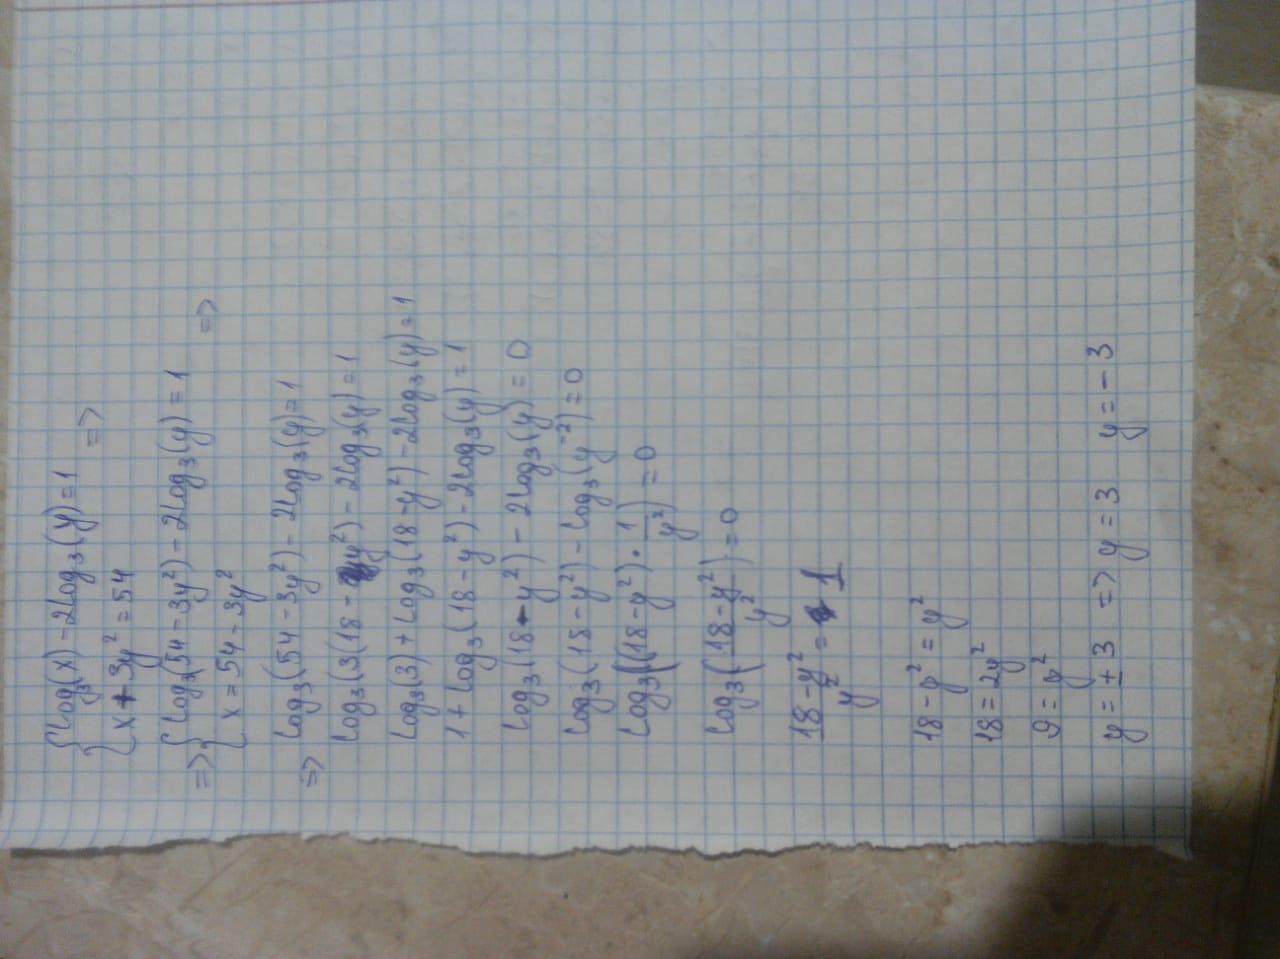 { log₃(x) - 2log₃(y) = 1
{ x + 3y² = 54 =>
=> { log₃(54 - 3y²) - 2log₃(y) = 1
{ x = 54 - 3y² =>
=> log₃(54 - 3y²) - 2log₃(y) = 1
log₃(3(18 - y²) - 2log₃(y) = 1
log₃(3) + log₃(18 - y²) - 2log₃(y) = 1
1 + log₃(18 - y²) - 2log₃(y) = 1
log₃(18 - y²) - 2log₃(y) = 0
log₃(18 - y²) - log₃(y⁻²) = 0
log₃((18 - y²) · 1/y²) = 0
log₃(18 - y²/y²) = 0
18 - y²/y² = 1
18 - y² = y²
18 = 2y²
9 = y²
y = ± 3 => y = 3 y = - 3